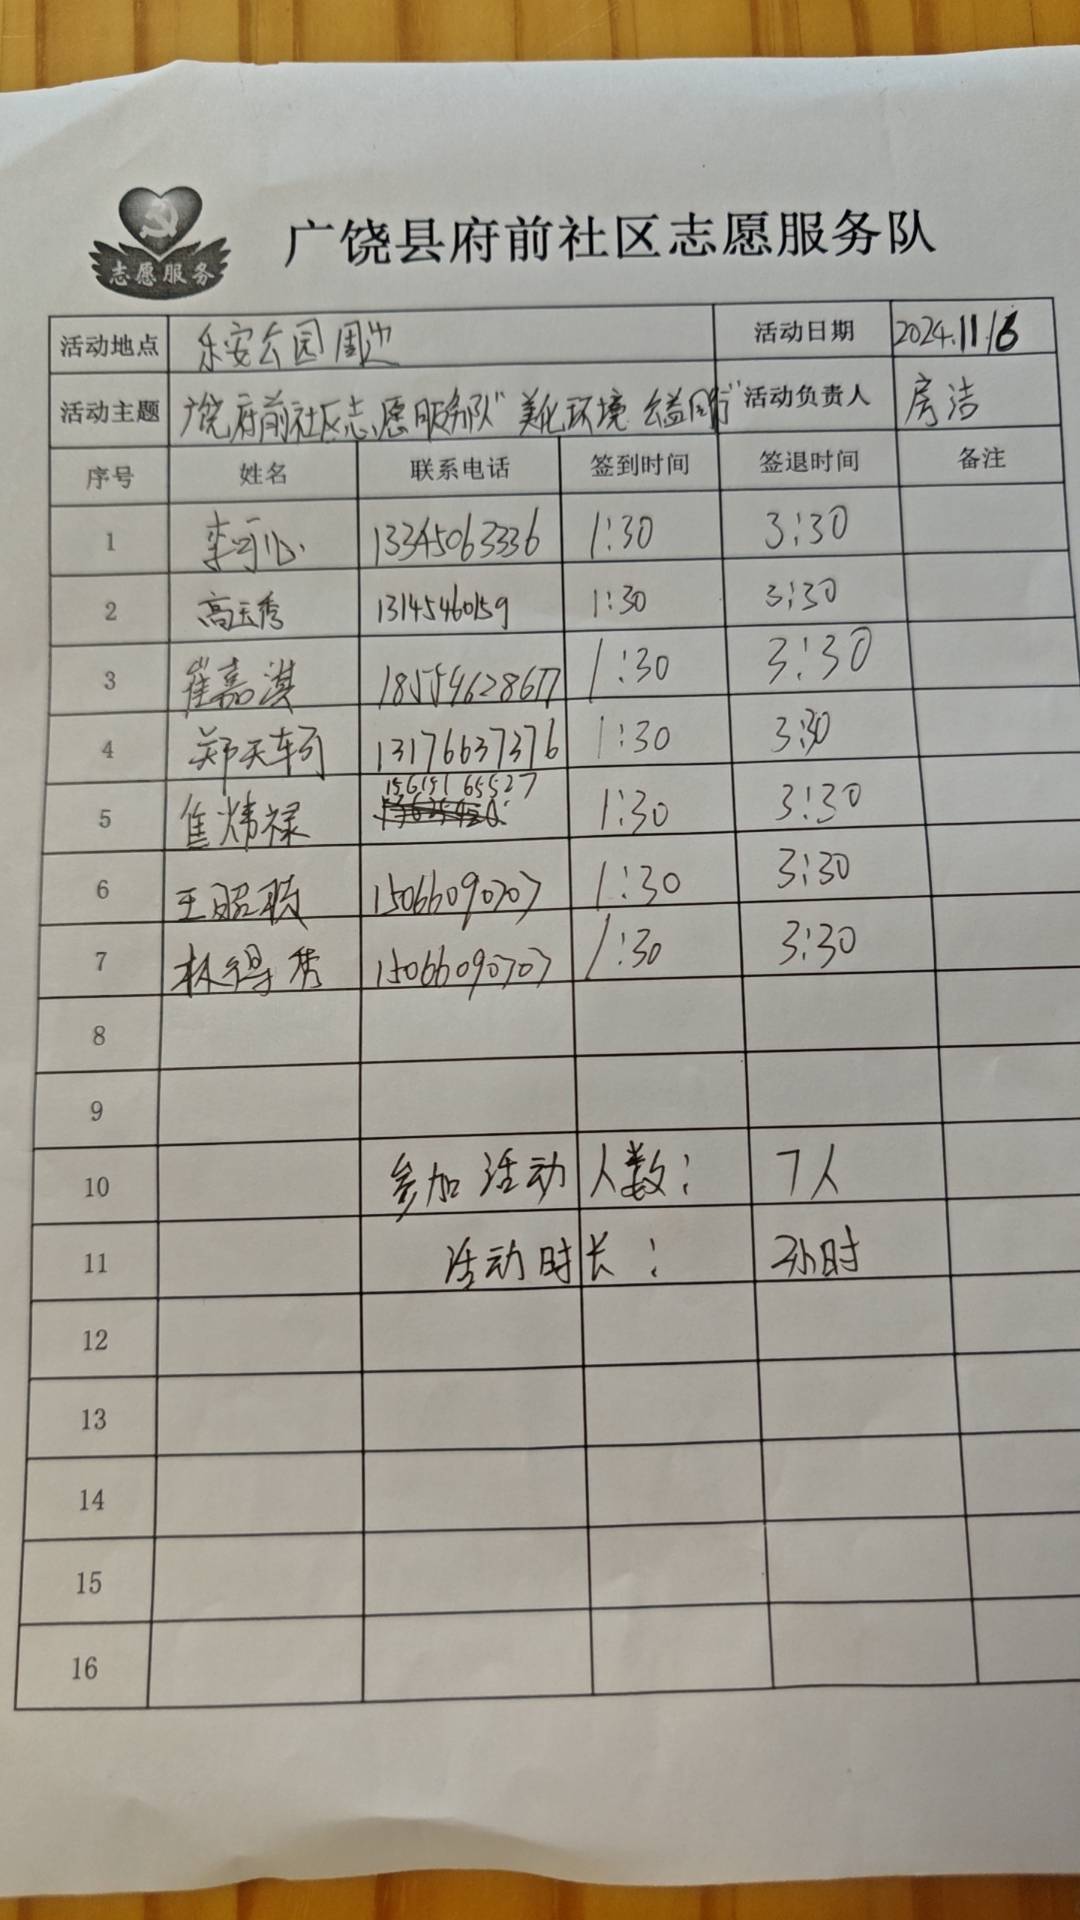 志愿服务
广饶县府前社区志愿服务队
活动地点 乐安公园周边 活动日期 2024.11.16
活动主题 广饶府前社区志愿服务队"美化环境 公益同行" 活动负责人 房洁
序号 姓名 联系电话 签到时间 签退时间 备注
1 李可心 13345063336 1:30 3:30
2 高玉秀 13145460159 1:30 3:30
3 崔嘉淇 18554628677 1:30 3:30
4 郑天 13176637376 1:30 3:30
5 15615165527 1:30 3:30
6 王昭 15066090707 1:30 3:30
7 林得秀 15066090707 1:30 3:30
8
9
10 参加活动人数: 7人
11 活动时长: 2小时
12
13
14
15
16